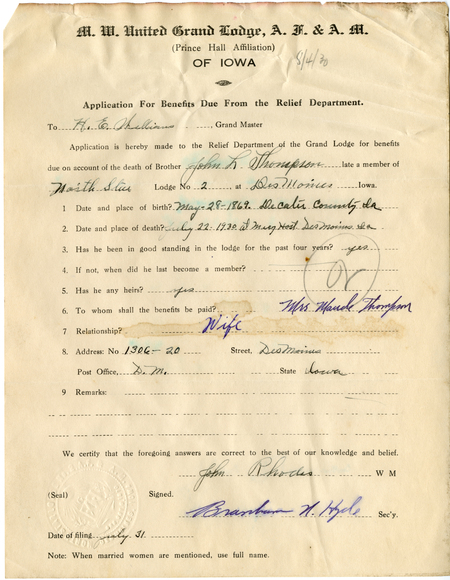 M. W. United Grand Lodge, A. F. & A. M.
(Prince Hall Affiliation)
OF IOWA
8/4/30
Application For Benefits Due From the Relief Department.
To H. E. Williams, Grand Master
Application is hereby made to the Relief Department of the Grand Lodge for benefits
due on account of the death of Brother John L. Thompson late a member of
North Star Lodge No. 2 at Des Moines Iowa.
1 Date and place of birth? May-28-1869. Decatur County, Ia
2 Date and place of death? July 22-1930 at Mercy Host. Des Moines Ia
3 Has he been in good standing in the lodge for the past four years? yes
4 If not, when did he last become a member?
5 Has he any heirs? yes
6 To whom shall the benefits be paid? Mrs Maude Thompson
7 Relationship? Wife
8 Address: No. 1306-20 Street, Des Moines
Post Office, D. M. State Iowa
9 Remarks:
We certify that the foregoing answers are correct to the best of our knowledge and belief.
John Rhodes W M
(Seal) Signed.
H. Hyde Sec'y.
Date of filing July 31
Note: When married women are mentioned, use full name.